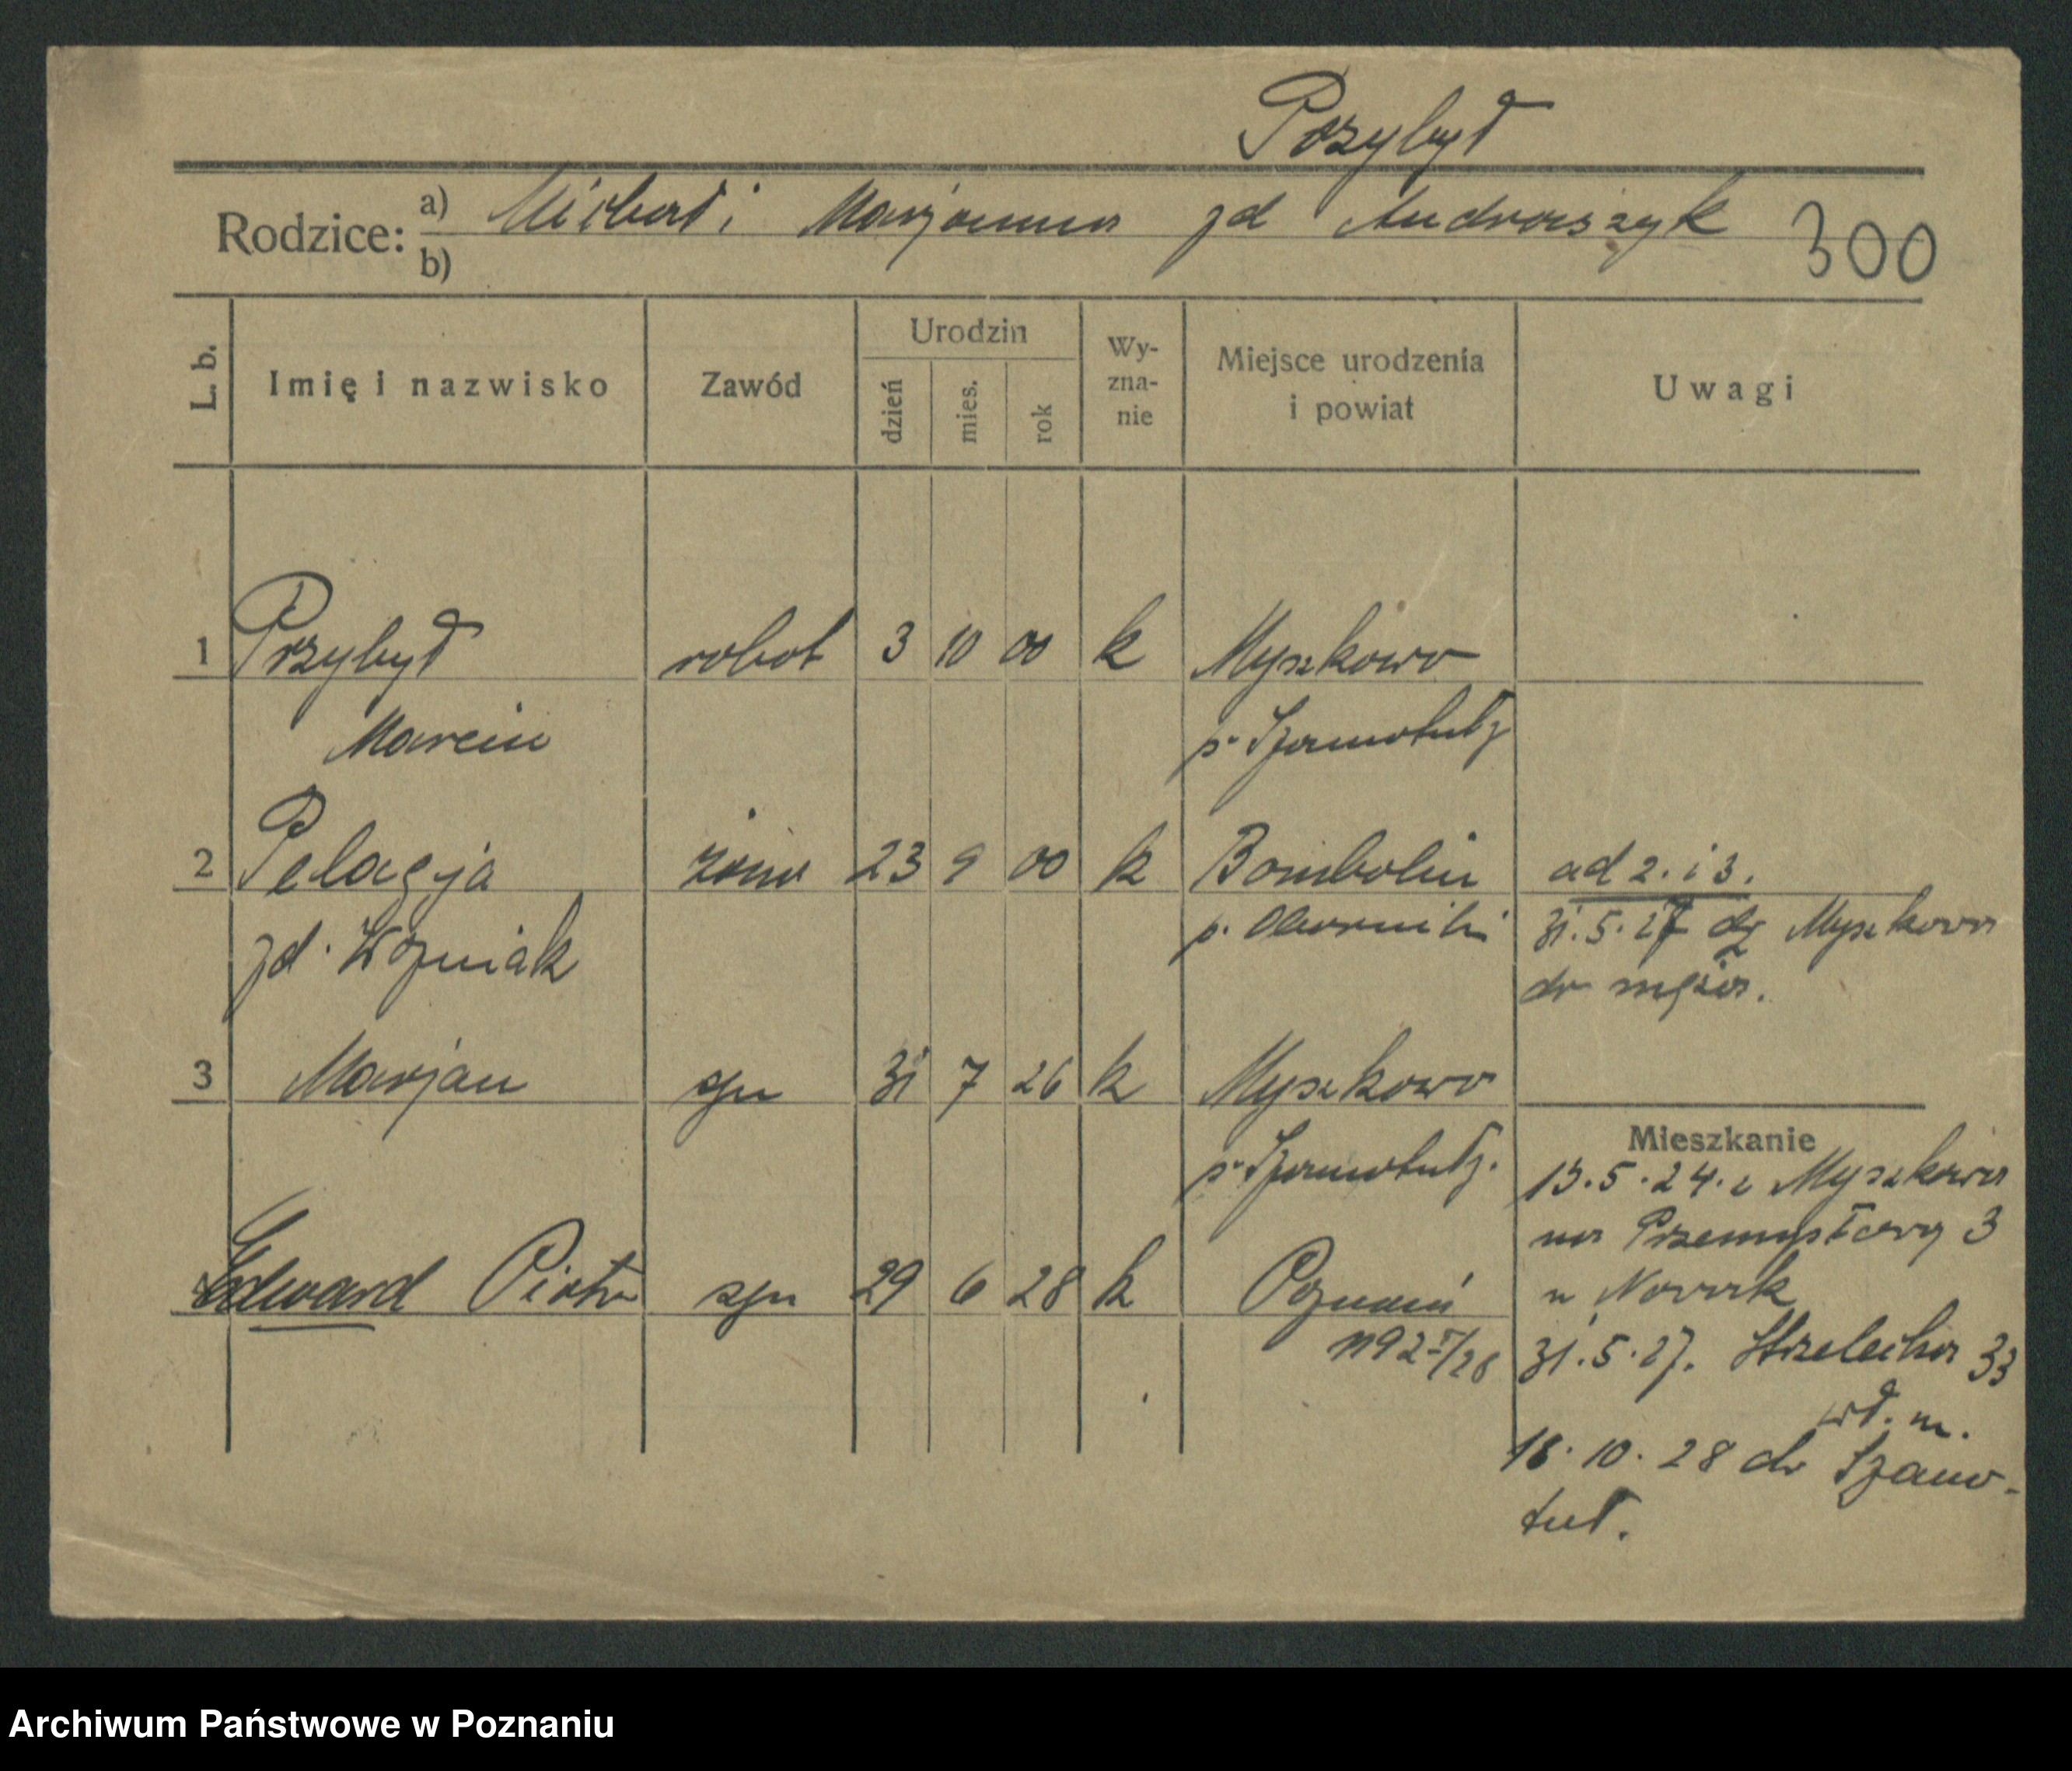 Przybył
Rodzice: a) Michał i Marjanna zd Andraszyk 300
b)
L. b. Imię i nazwisko Zawód Urodzin Wy-zna-nie Miejsce urodzenia i powiat Uwagi
dzień mies. rok
1 Przybył robot 3 10 00 k Myszkowo
Marcin p. Szamotuły
2 Pelagja żona 23 9 00 k Bombolin ad 2. i 3.
zd. Woźniak p. Oborniki 31.5.27 dz Myszkowo
do męża.
3 Marjan syn 31 7 26 k Myszkowo
Mieszkanie
p. Szamotuły. 13.5.24. z Myszkowa
na Przemysłową 3
Edward Piotr syn 29 6 28 k Poznań u Nowak
1192 /28 31.5.27. Strzelecka 33
wł. m.
18.10.28 do Szamo-
tuł.
Archiwum Państwowe w Poznaniu